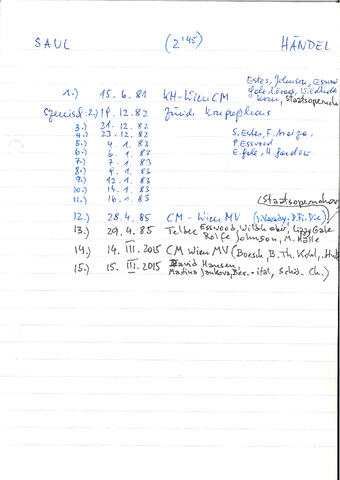 SAUL (2'45) HÄNDEL
Estes, Johnson, Esswood
Gale, Wildhaber
1.) 15. 6. 81 KH-Wien CM Staatsopernchor
2.) 19. 12. 82 Zürich
3.) 21. 12. 82
4.) 23. 12. 82 S. Estes, F.
5.) 4. 1. 83 P. Esswood
6.) 6. 1. 83 E. Gale, H.
7.) 7. 1. 83
8.) 9. 1. 83
9.) 12. 1. 83
10.) 14. 1. 83
11.) 16. 1. 83
(Staatsopernchor)
12.) 28. 4. 85 CM - Wien MV (J. Varady, D. Fi. Die.)
13.) 29. 4. 85 Teldec Esswood, Wildhaber, Lizzy Gale
Rolfe Johnson, M. Hölle
14.) 14. III. 2015 CM Wien MV (Boesch, B. Th. Kohl,
15.) 15. III. 2015 David Hansen,
Martina Jankova, Bee.-ital, Schö. Ch.)